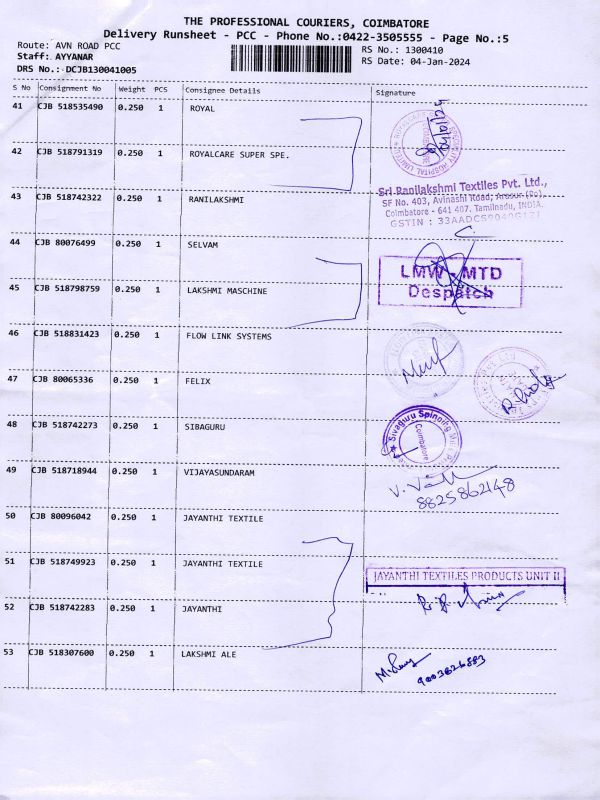 THE PROFESSIONAL COURIERS, COIMBATORE
Delivery Runsheet - PCC - Phone No.:0422-3505555 - Page No.:5
Route: AVN ROAD PCC
RS No.: 1300410
Staff: AYYANAR
RS Date: 04-Jan-2024
DRS No.: DCJB130041005
S No Consignment No Weight PCS Consignee Details Signature
41 CJB 518535490 0.250 1 ROYAL
42 CJB 518791319 0.250 1 ROYALCARE SUPER SPE.
43 CJB 518742322 0.250 1 RANILAKSHMI
Sri Ranilakshmi Textiles Pvt. Ltd.,
SF No. 403, Avinashi Road, Arasur (Po),
Coimbatore - 641 407. Tamilnadu, INDIA.
GSTIN : 33AADCS9040G1Z1
44 CJB 80076499 0.250 1 SELVAM
LMW - MTD
Despatch
45 CJB 518798759 0.250 1 LAKSHMI MASCHINE
46 CJB 518831423 0.250 1 FLOW LINK SYSTEMS
47 CJB 80065336 0.250 1 FELIX
48 CJB 518742273 0.250 1 SIBAGURU
Sivaguru Spinning
Coimbatore
49 CJB 518718944 0.250 1 VIJAYASUNDARAM
8825862148
50 CJB 80096042 0.250 1 JAYANTHI TEXTILE
51 CJB 518749923 0.250 1 JAYANTHI TEXTILE
JAYANTHI TEXTILES PRODUCTS UNIT II
52 CJB 518742283 0.250 1 JAYANTHI
53 CJB 518307600 0.250 1 LAKSHMI ALE
9003626883